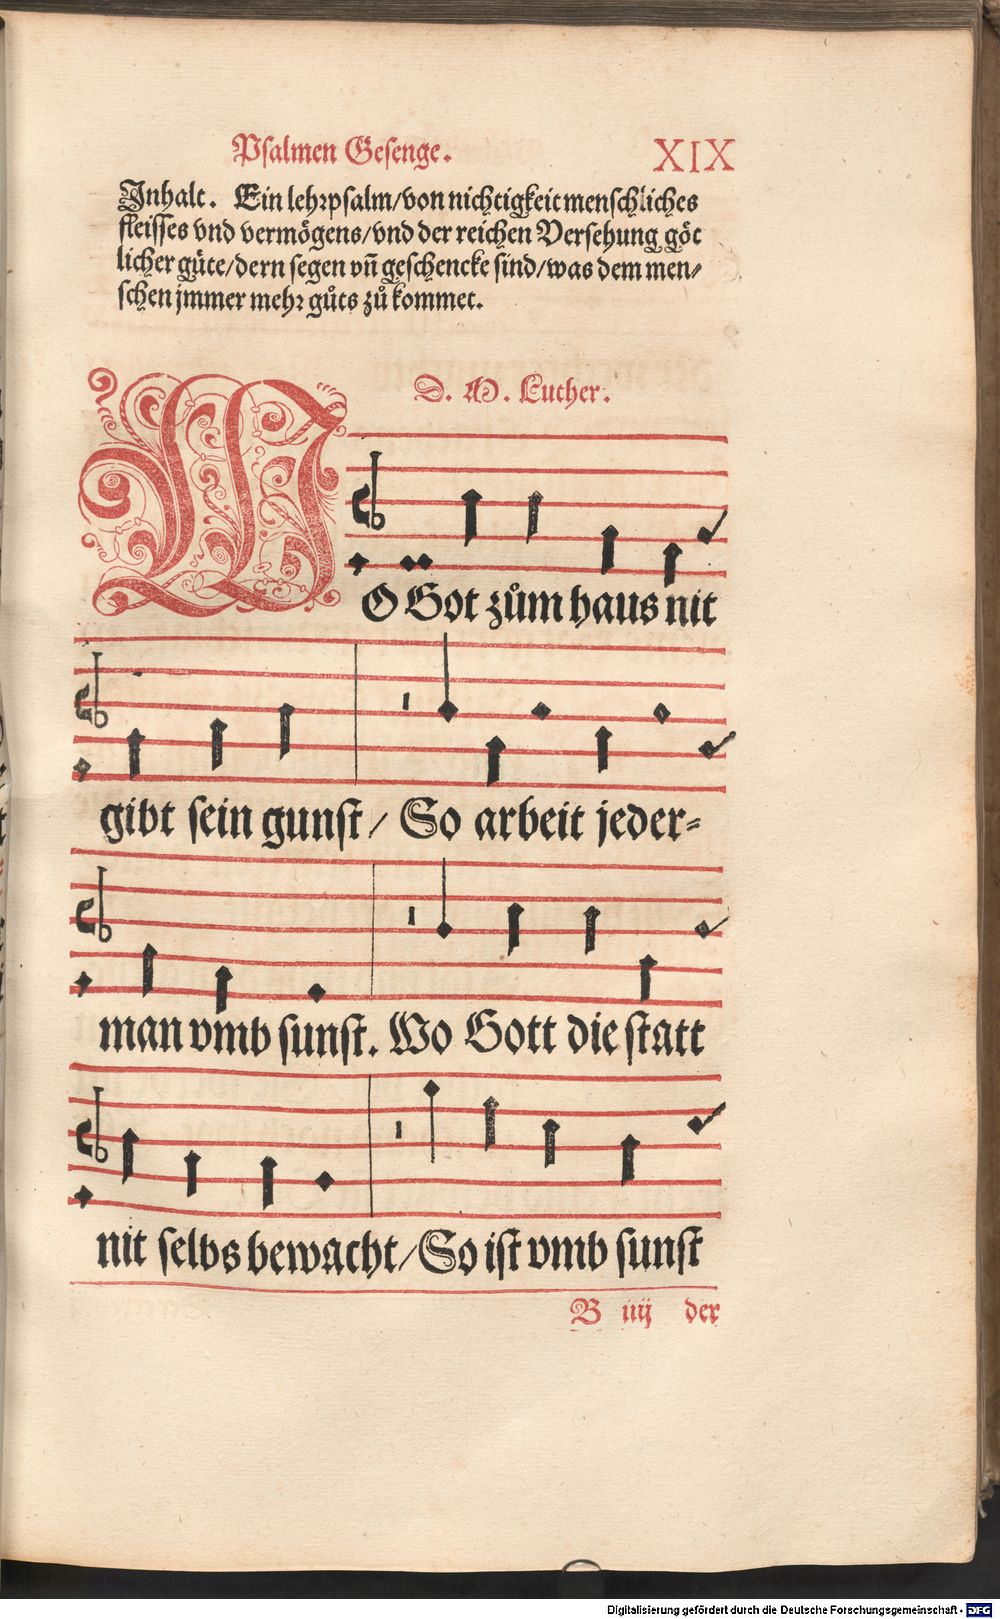 Psalmen Gesenge. XIX
Inhalt. Ein lehrpsalm/von nichtigkeit menschliches
fleisses vnd vermögens/vnd der reichen Versehung göt
licher güte/dern segen vñ geschencke sind/was dem men⸗
schen jmmer mehr gůts zů kommet.
D. M. Luther.
WO Got zům haus nit
gibt sein gunst/ So arbeit jeder⸗
man vmb sunst. Wo Gott die statt
nit selbs bewacht/So ist vmb sunst
B iiij der
Digitalisierung gefördert durch die Deutsche Forschungsgemeinschaft - DFG